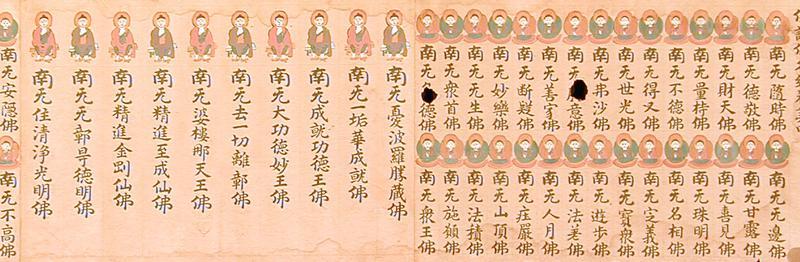 南无隨時佛
南无德敬佛
南无財天佛
南无量持佛
南无不德佛
南无得叉佛
南无世光佛
南无弗沙佛
南无意佛
南无善佛
南无断疑佛
南无妙樂佛
南无无生佛
南无衆首佛
南无德佛
南无无邊佛
南无甘露佛
南无喜見佛
南无珠明佛
南无名相佛
南无定義佛
南无寶衆佛
南无遊步佛
南无法差佛
南无人月佛
南无庄嚴佛
南无山頂佛
南无法積佛
南无施願佛
南无衆王佛
南无憂波羅勝藏佛
南无一垢華成就佛
南无成就功德王佛
南无大功德妙王佛
南无去一切難鄣佛
南无婆樓那天王佛
南无精進至成仙佛
南无精進金剛仙佛
南无无鄣导德明佛
南无住清淨光明佛
南无安隱佛
南无不高佛